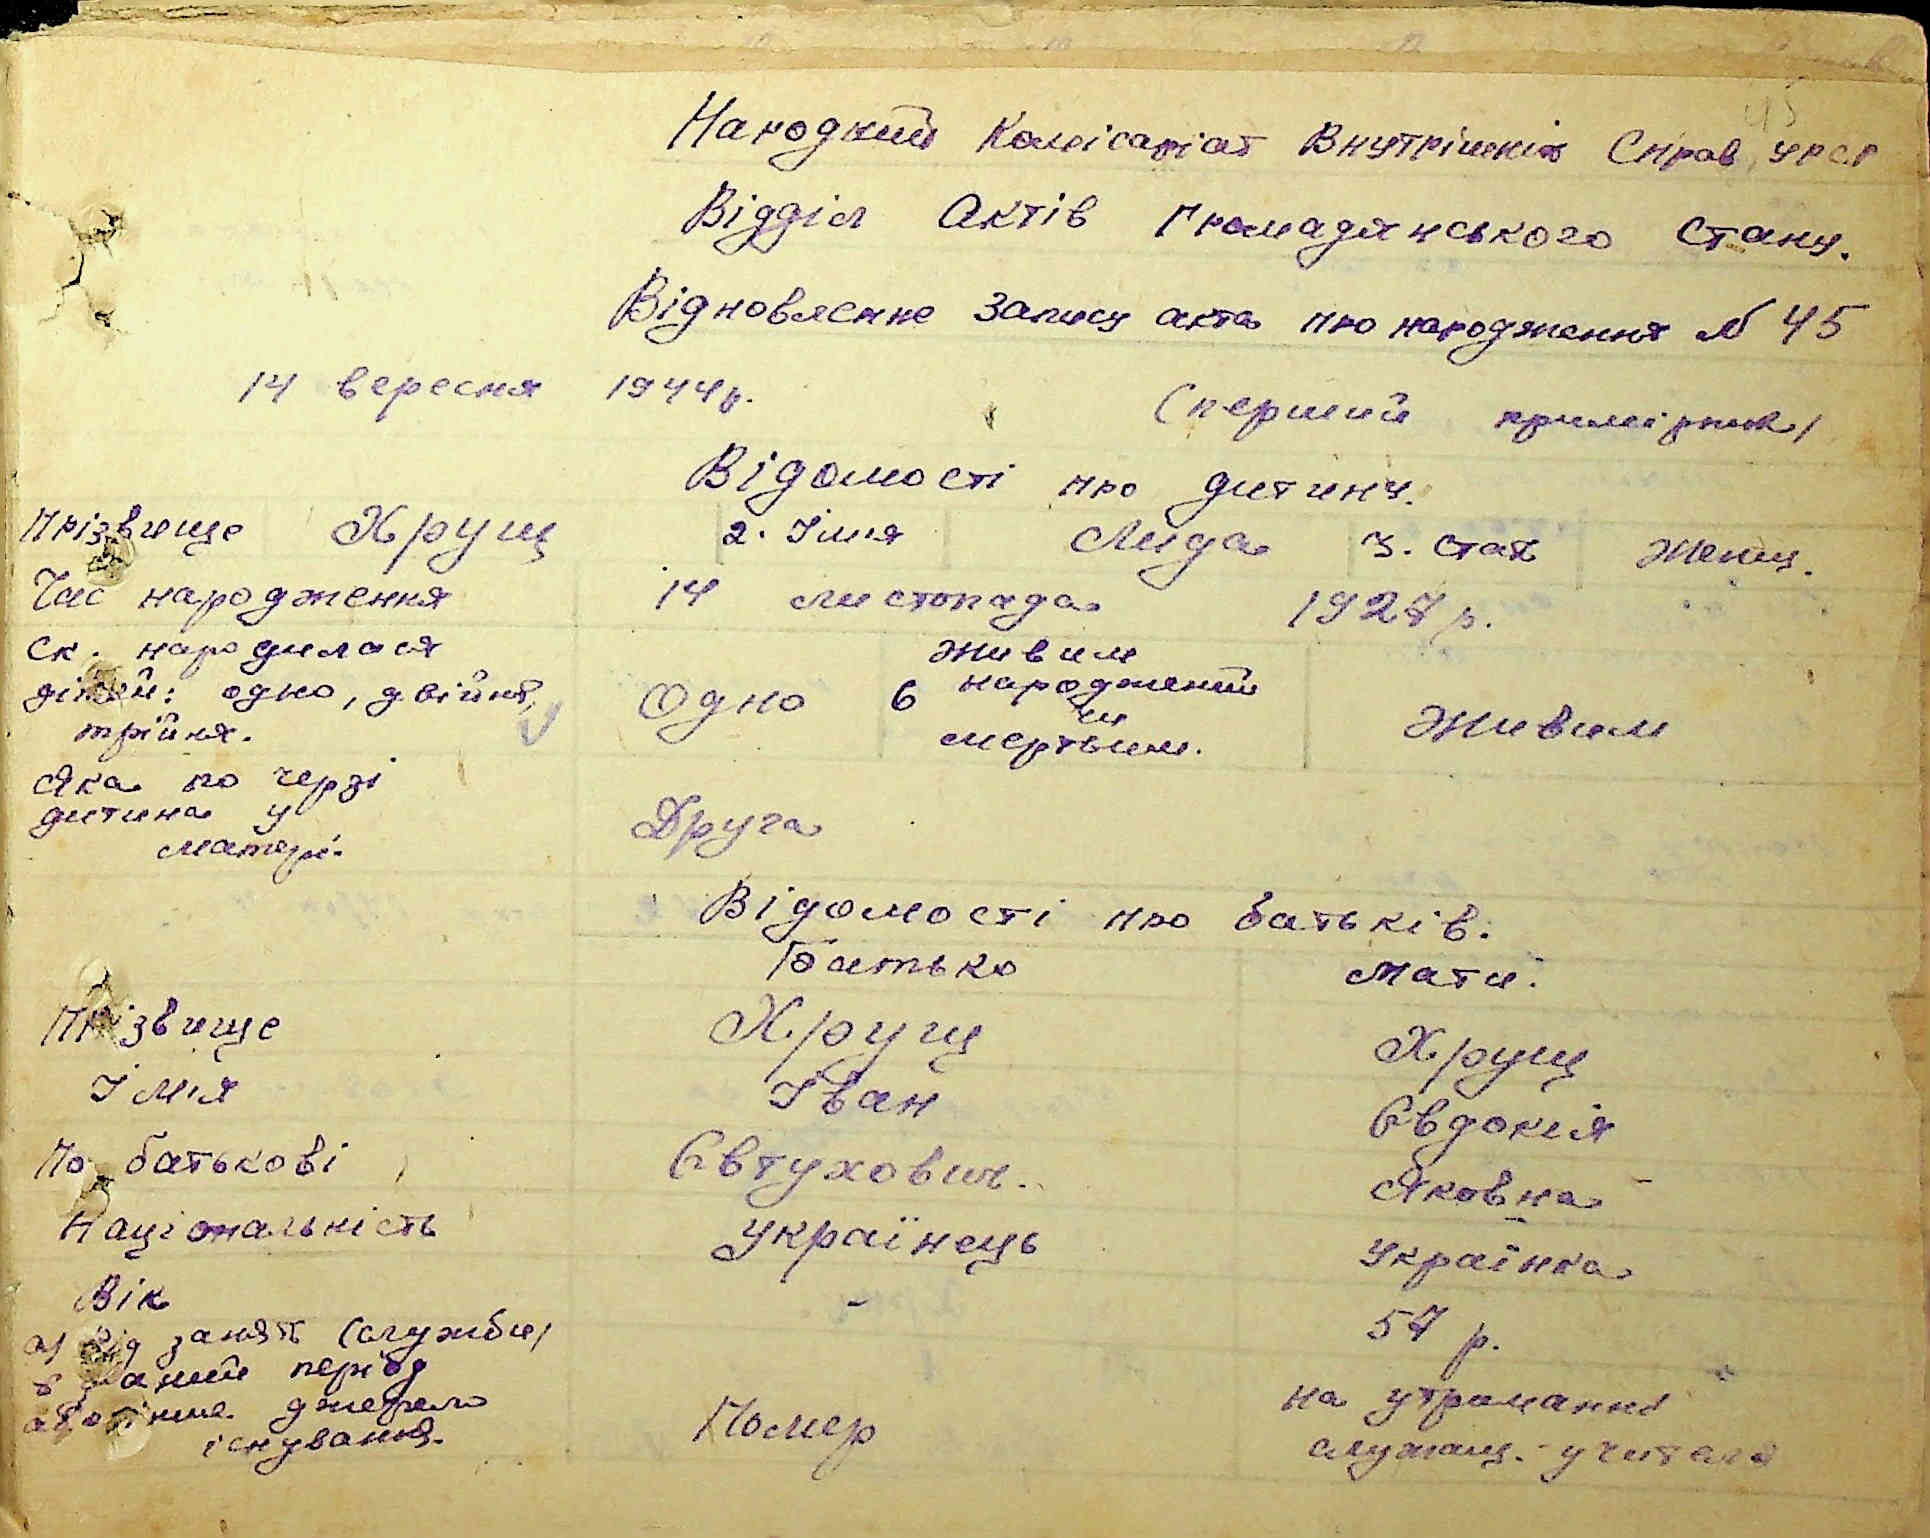 45
Народний Комісаріат Внутрішніх Справ УРСР
Відділ Актів Громадянського Стану.
Відновленне запису акта про народження № 45
14 вересня 1944 р. (перший примірник)
Відомості про дитину.
Прізвище Хрущ 2. Імя Лида 3. стать женщ.
Час народження 14 листопада 1927 р.
Ск. народилася
дітей: одно, двійня,
трійня. Одно 6 живим
народжений
чи
мертвим. Живим
Яка по черзі
дитина у
матері. Друга
Відомості про батьків.
Батько Мати.
Прізвище Хрущ Хрущ
Ім'я Іван Євдокия
По батькові Євтухович. Яковна
Національність Українець Українка
Вік - 57 р.
а) Від занять (служби)
в даний період
або інше джерело
існування. Помер на утриманні
служащ. - учителя